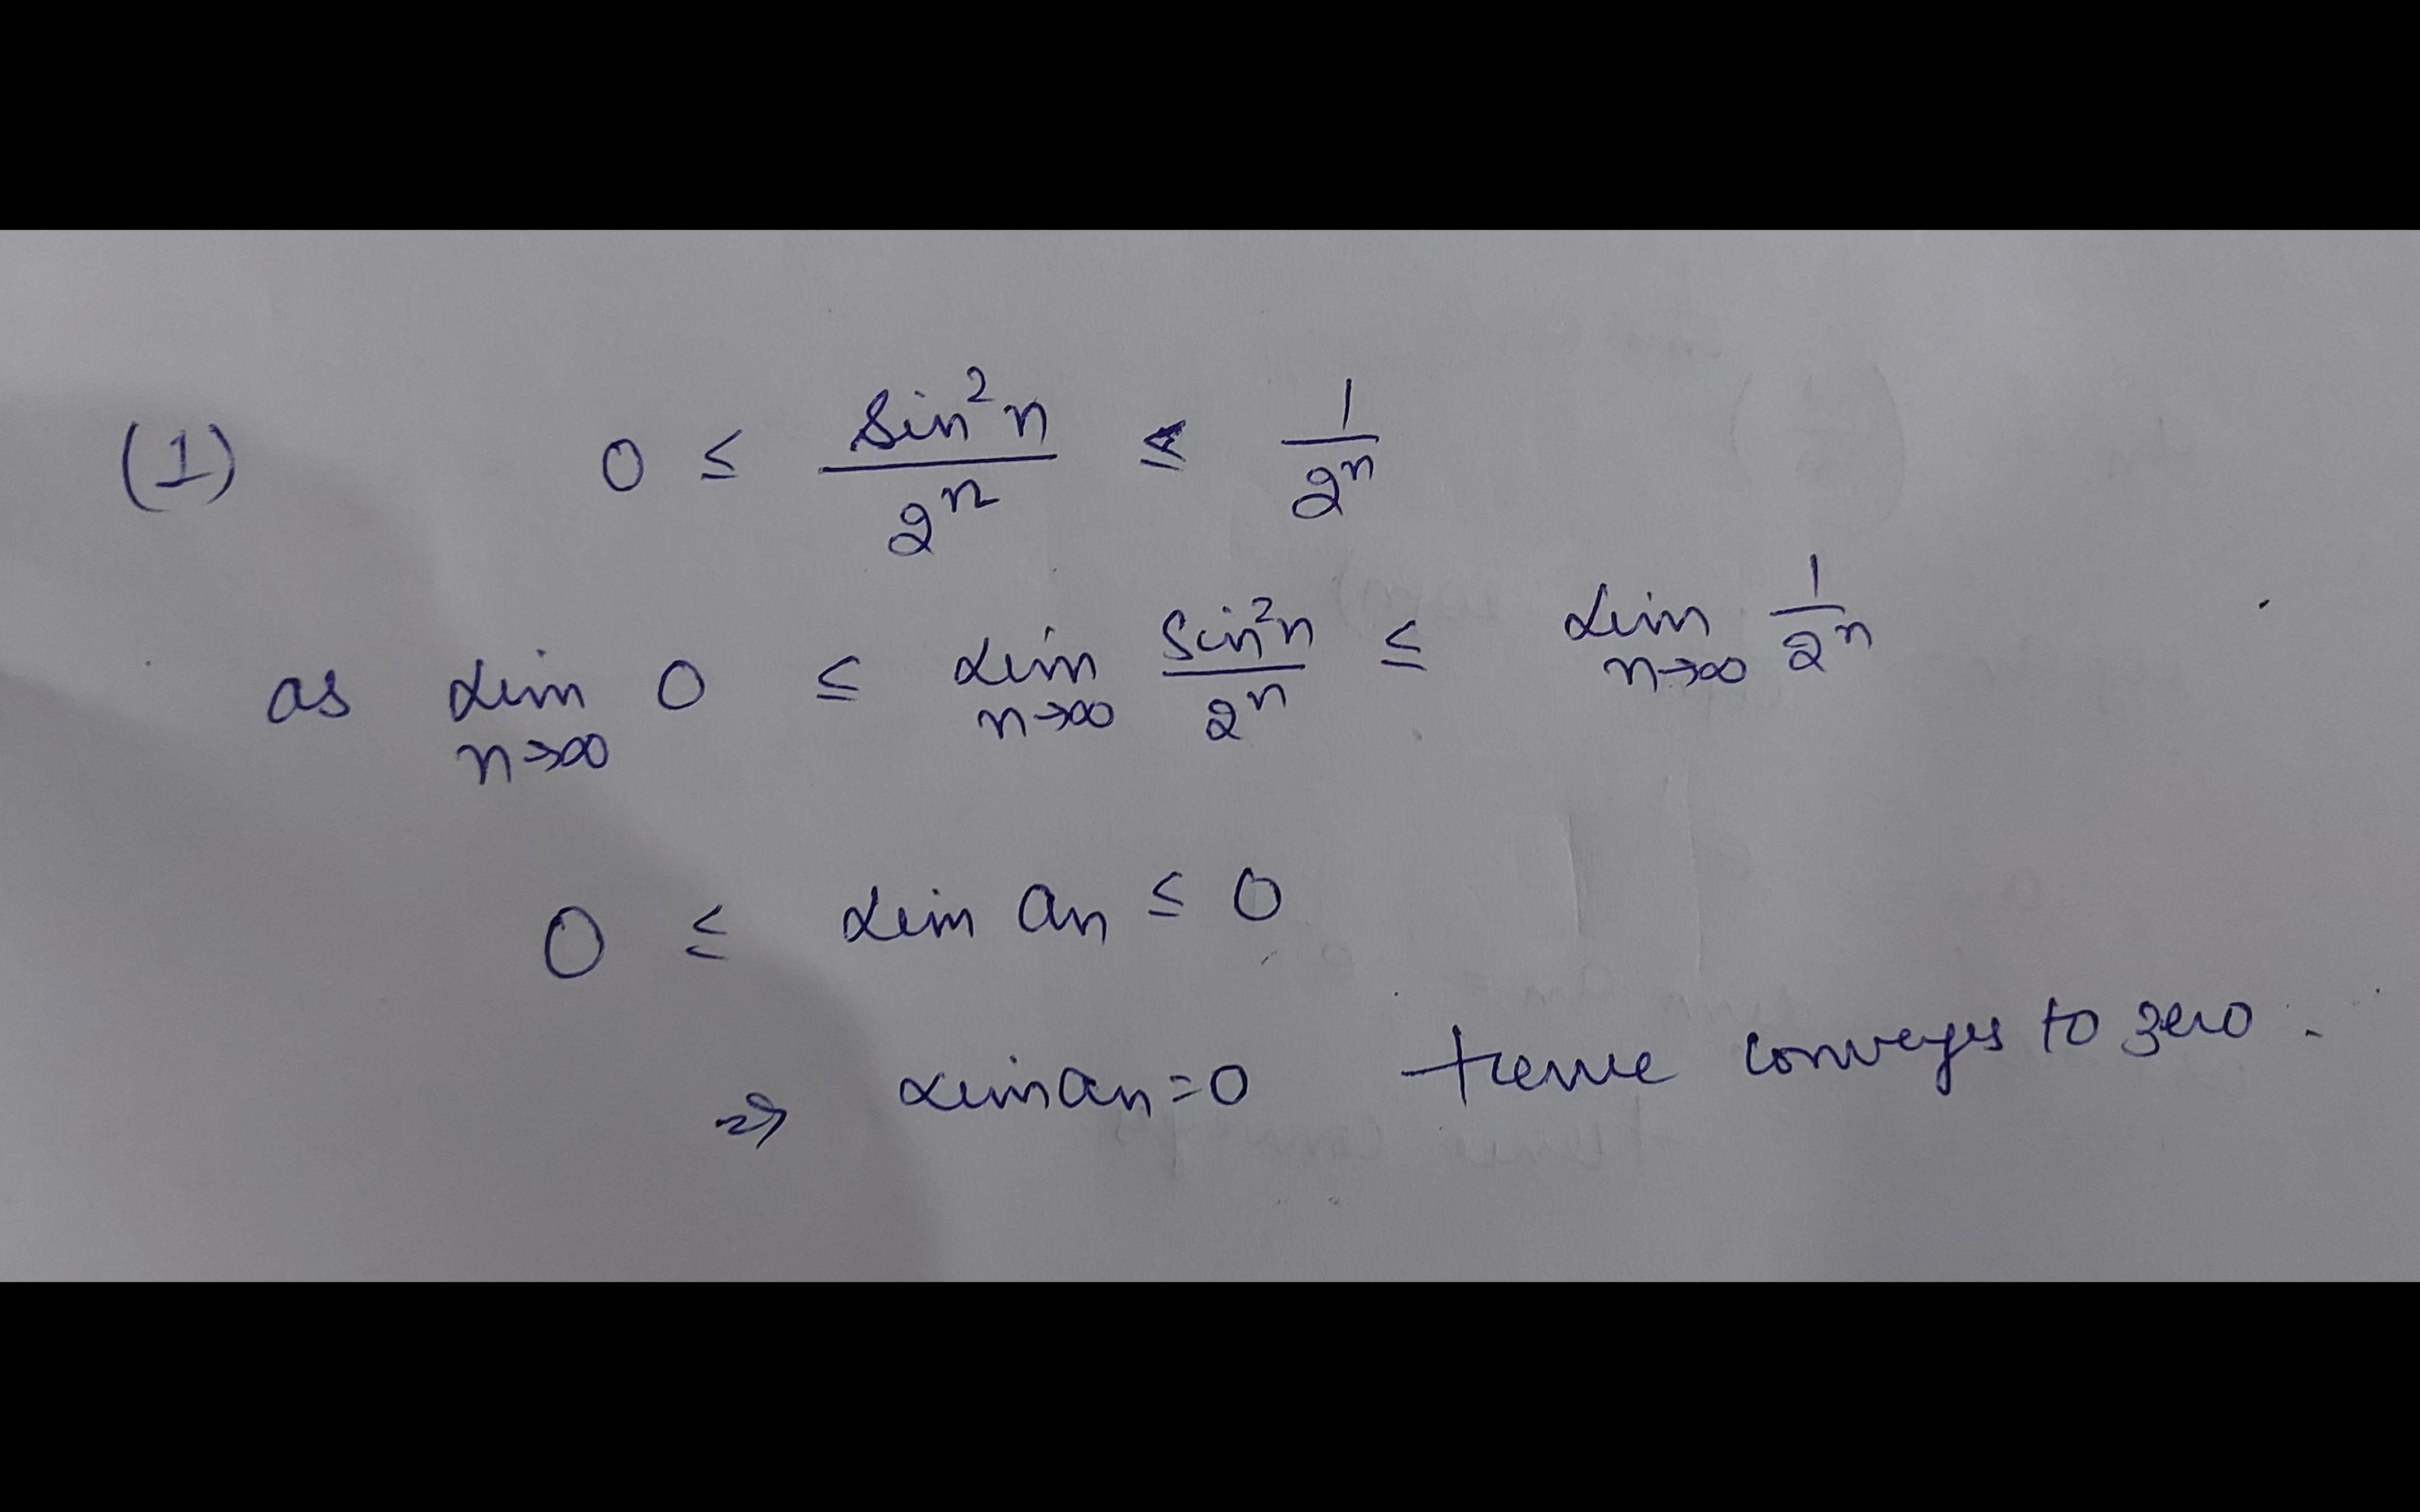 (1) 0 ≤ sin²n / 2ⁿ ≤ 1 / 2ⁿ
as lim n→∞ 0 ≤ lim n→∞ sin²n / 2ⁿ ≤ lim n→∞ 1 / 2ⁿ
0 ≤ lim an ≤ 0
⇒ lim an = 0 Hence converges to zero.